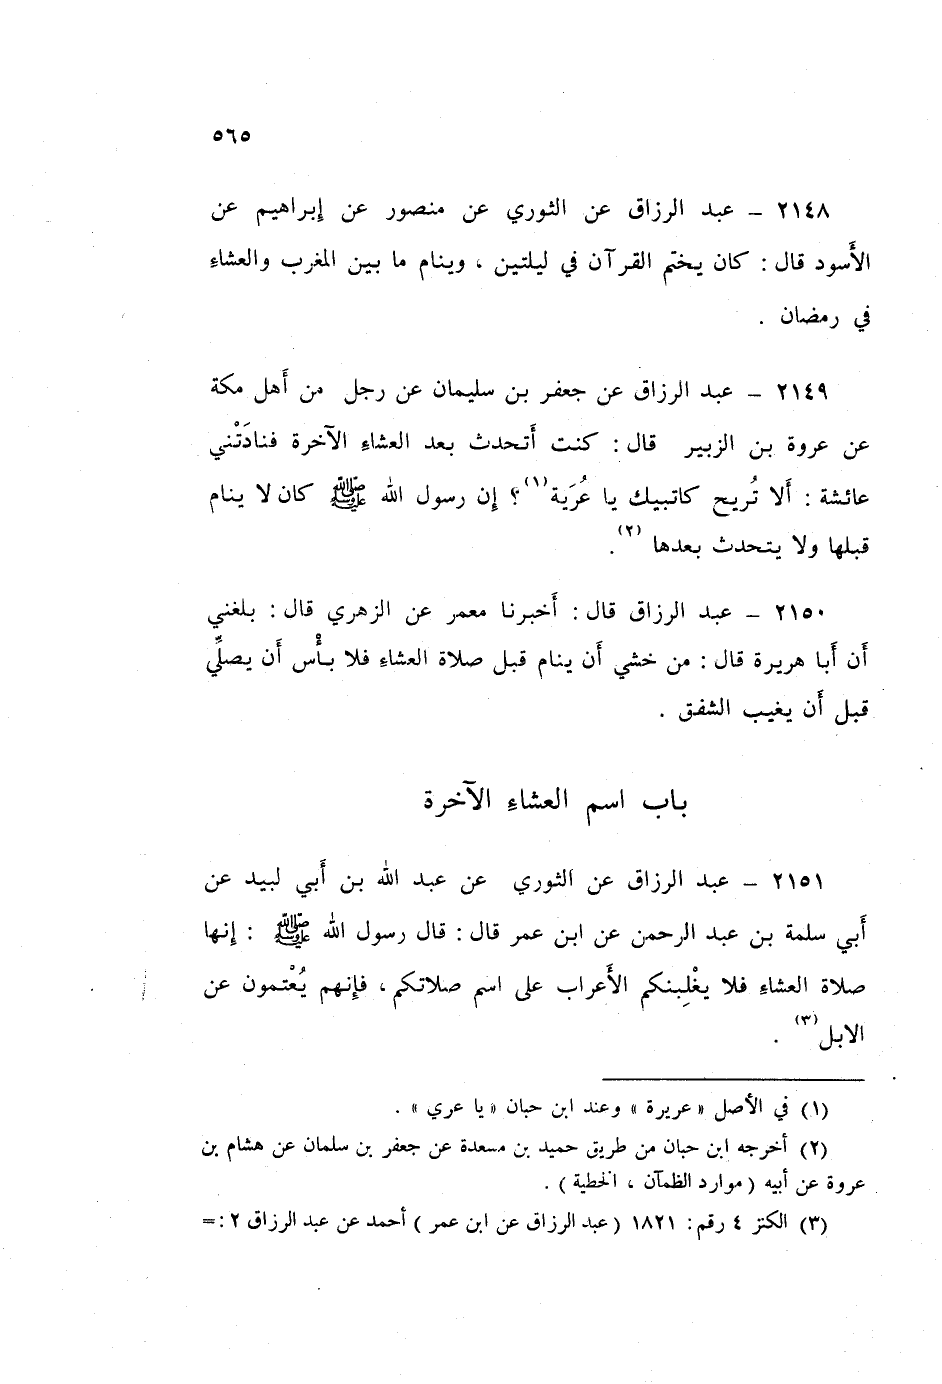 ٥٦٥
٢١٤٨ – عبد الرزاق عن الثوري عن منصور عن إبراهيم عن
الأَسود قال : كان يختم القرآن في ليلتين ، وينام ما بين المغرب والعشاء
في رمضان .
٢١٤٩ – عبد الرزاق عن جعفر بن سليمان عن رجل من أَهل مكة
عن عروة بن الزبير قال : كنت أَتحدث بعد العشاء الآخرة فنادَتْني
عائشة : أَلا تُريح كاتبيك يا عُرَية (١) ؟ إن رسول الله ﷺ كان لا ينام
قبلها ولا يتحدث بعدها (٢) .
٢١٥٠ – عبد الرزاق قال : أَخبرنا معمر عن الزهري قال : بلغني
أَن أَبا هريرة قال : من خشي أَن ينام قبل صلاة العشاء فلا بأْس أَن يصلِّي
قبل أَن يغيب الشفق .
باب اسم العشاء الآخرة
٢١٥١ – عبد الرزاق عن الثوري عن عبد الله بن أَبي لبيد عن
أَبي سلمة بن عبد الرحمن عن ابن عمر قال : قال رسول الله ﷺ : إنها
صلاة العشاء فلا يغْلِبنكم الأَعراب على اسم صلاتكم ، فإنهم يُعْتمون عن
الابل (٣) .
(١) في الأصل « عريرة » وعند ابن حبان « يا عري » .
(٢) أخرجه ابن حبان من طريق حميد بن مسعدة عن جعفر بن سلمان عن هشام بن
عروة عن أبيه ( موارد الظمآن ، الخطية ) .
(٣) الكنز ٤ رقم : ١٨٢١ ( عبد الرزاق عن ابن عمر ) أحمد عن عبد الرزاق ٢ : =